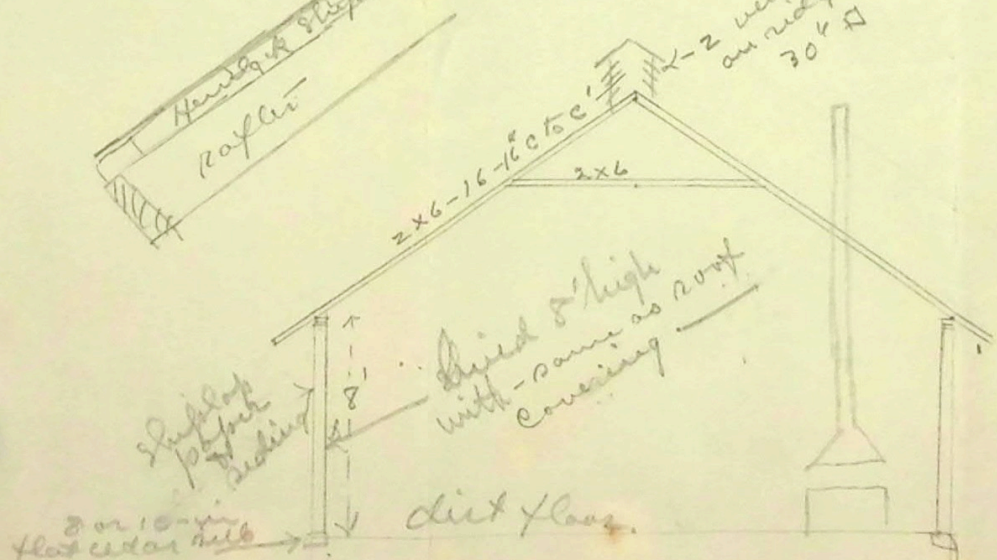 Hemlock Ship
rafter
2-2 ve
on ridg
30"
2x6-16-16" C to C
2x6
8'
lined 8' high
with - same as roof
covering
shiplap
paper
&
siding
dirt floor
8 or 10-in
flat cedar